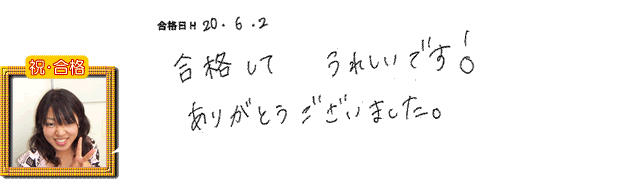 合格日 H 20．6．2
祝・合格
合格して　うれしいです！
ありがとうございました。